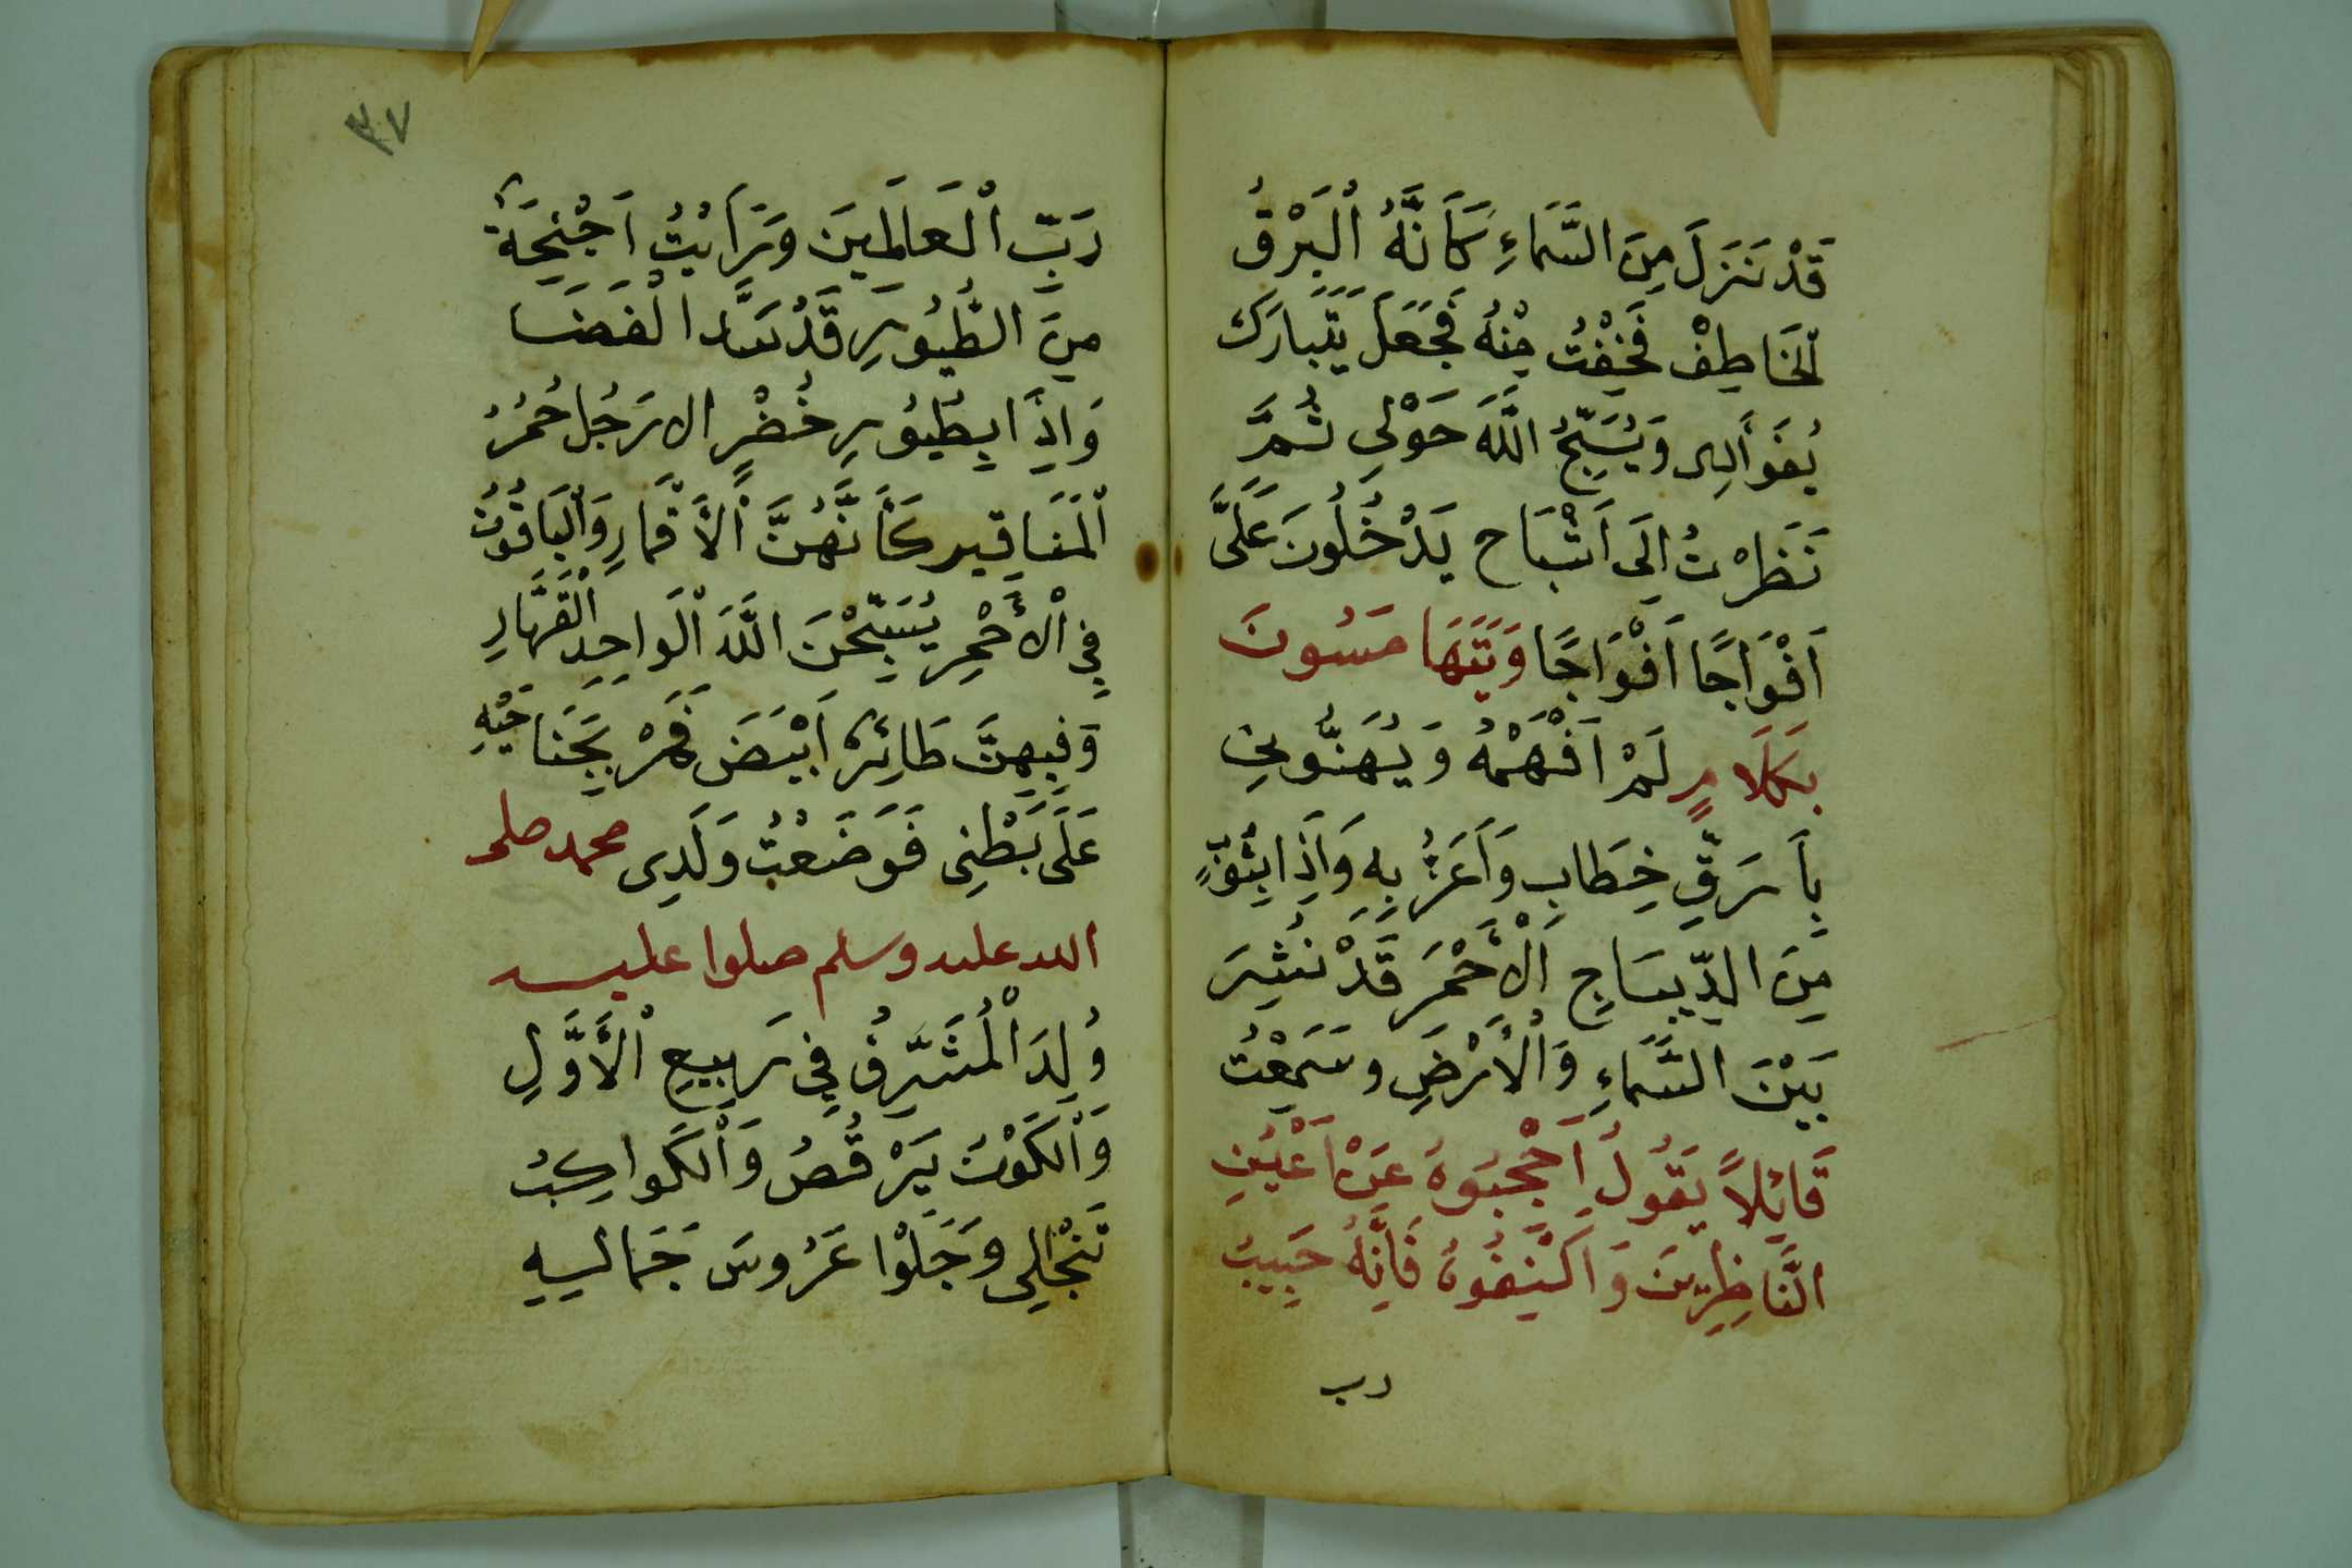 قَدْ نَنَزَلَ مِنَ السَّمَاءِ كَأَنَّهُ الْبَرْقُ
الْخَاطِفْ فَخِفْتُ مِنْهُ فَجَعَلَ يَتَبَارَكُ
وَيُسَبِّحُ اللَّهَ حَوْلِي ثُمَّ
نَظَرْتُ اِلَى اَشْبَاحٍ يَدْخُلُونَ عَلَىَّ
اَفْوَاجًا اَفْوَاجًا وَيَتَهَامَسُونَ
بِكَلَامٍ لَمْ اَفْهَمْهُ وَيُهَنُّونِي
بِاَرَقِّ خِطَابٍ وَاَعَزُّ بِهِ وَاِذَا بِثَوْبٍ
مِنَ الدِّيبَاجِ الْأَحْمَرِ قَدْ نُشِرَ
بَيْنَ السَّمَاءِ وَالْأَرْضِ وسَمِعْتُ
قَائِلاً يَقُولُ اَحْجِبُوهُ عَنْ اَعْيُنِ
النَّاظِرِينَ وَاكْنِفُوهُ فَاِنَّهُ حَبِيبُ
رب
٣٧
رَبِّ الْعَالَمِينَ وَرَاَيْتُ اَجْنِحَةً
مِنَ الطُّيُورِ قَدْ سَدَّ الْفَضَا
وَاِذَا بِطُيُورٍ خُضْرٍ الارَجُل حُمْرُ
الْمَنَاقِير كَأَنَّهُنَّ الْأَقْمَارِ وَالْيَاقُوتُ
فِي الْأَحْمِرِ يُسَبِّحْنَ اللَّهَ الْوَاحِدِ الْقَهَّارِ
وَفِيهِنَّ طَائِرٌ اَبْيَضَ فَمَرْ بِجَنَاحَيْهِ
عَلَى بَطْنِى فَوَضَعْتُ وَلَدِى محمد صلى
الله عليه وسلم صلوا عليه
وُلِدَ الْمُشَرِّفُ فِي رَبِيعِ الْأَوَّلِ
وَالْكَوْنُ يَرْقُصُ وَالْكَوَاكِبُ
تَنْجَلِى وَجَلَوْا عَرُوسَ جَمَالِهِ